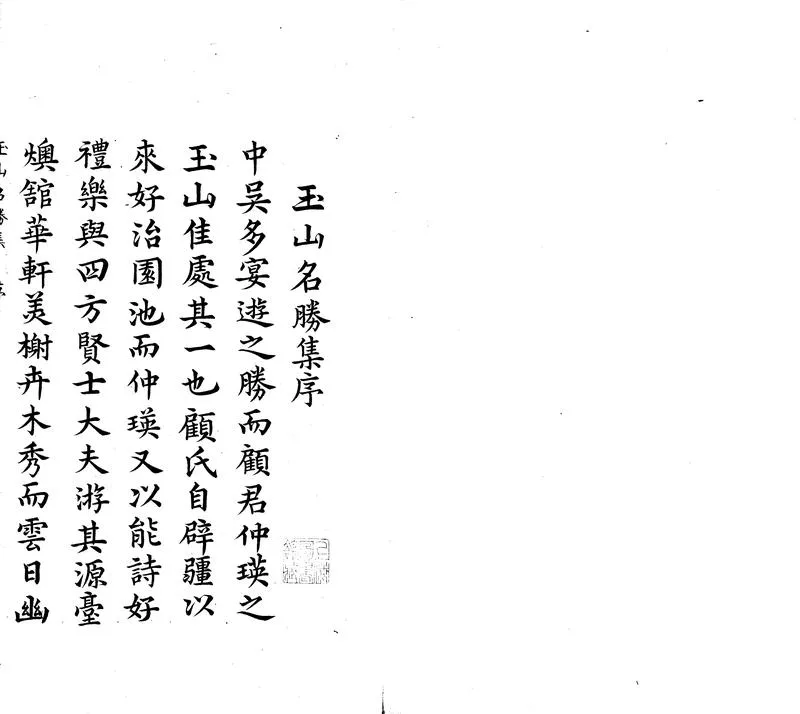 玉山名勝集序
中吳多宴遊之勝而顧君仲瑛之
玉山佳處其一也顧氏自辟疆以
來好治園池而仲瑛又以能詩好
禮樂與四方賢士大夫游其源臺
燠舘華軒美榭卉木秀而雲日幽
玉山名勝集 序